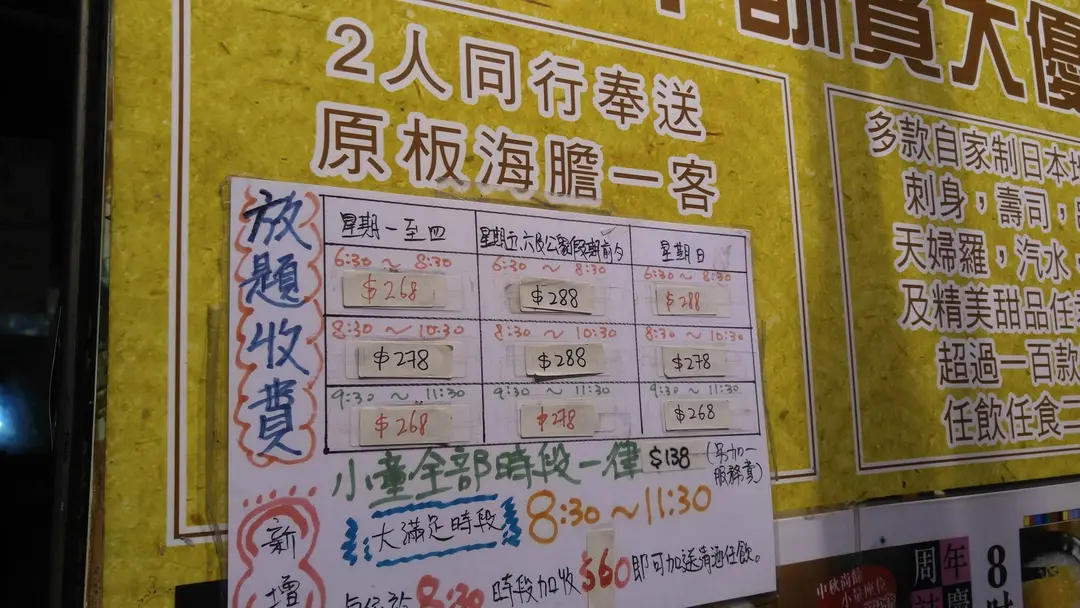 酬賓大優
2人同行奉送
原板海膽一客
多款自家制日本
刺身，壽司，
天婦羅，汽水，
及精美甜品任
超過一百款
任飲任食二
放題收費
星期一至四 星期五、六及公眾假期前夕 星期日
6:30～8:30 6:30～8:30 6:30～8:30
$268 $288 $288
8:30～10:30 8:30～10:30 8:30～10:30
$278 $288 $278
9:30～11:30 9:30～11:30 9:30～11:30
$268 $278 $268
小童全部時段一律 $138 (另加一服務費)
新增
大滿足時段 8:30～11:30
8:30 時段加收 $60 即可加送清酒任飲。
中秋尚餘
小量座位
周年
慶
8